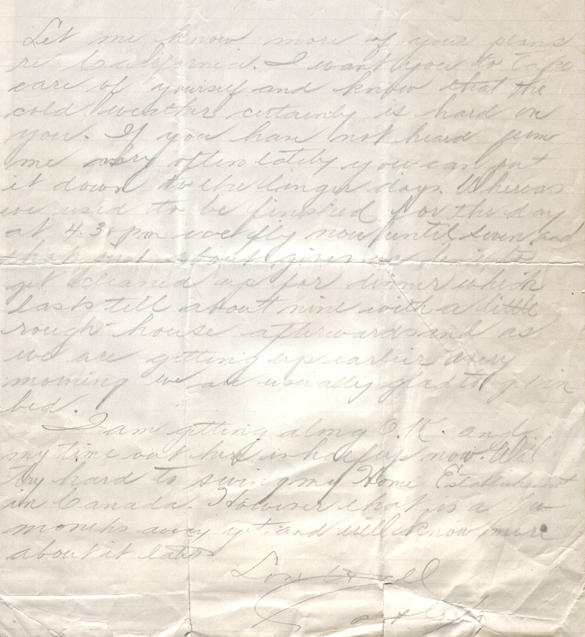 Let me know more of your plans
re California. I want you to take
care of yourself and know that the
cold weather certainly is hard on
you. If you have not heard from
me very often lately you can put
it down to the longer days. Whereas
we used to be finished for the day
at 4.30 pm we fly now until seven and
that just about gives us time to
get cleaned up for dinner which
lasts till about nine with a little
rough house afterwards and as
we are getting up earlier every
morning we are usually glad to get in
bed.
I am getting along O.K. and
my time out here is half up now. Will
try hard to swing my Home Establishment
in Canada. However that is a few
months away yet and will know more
about it later.
Love to all